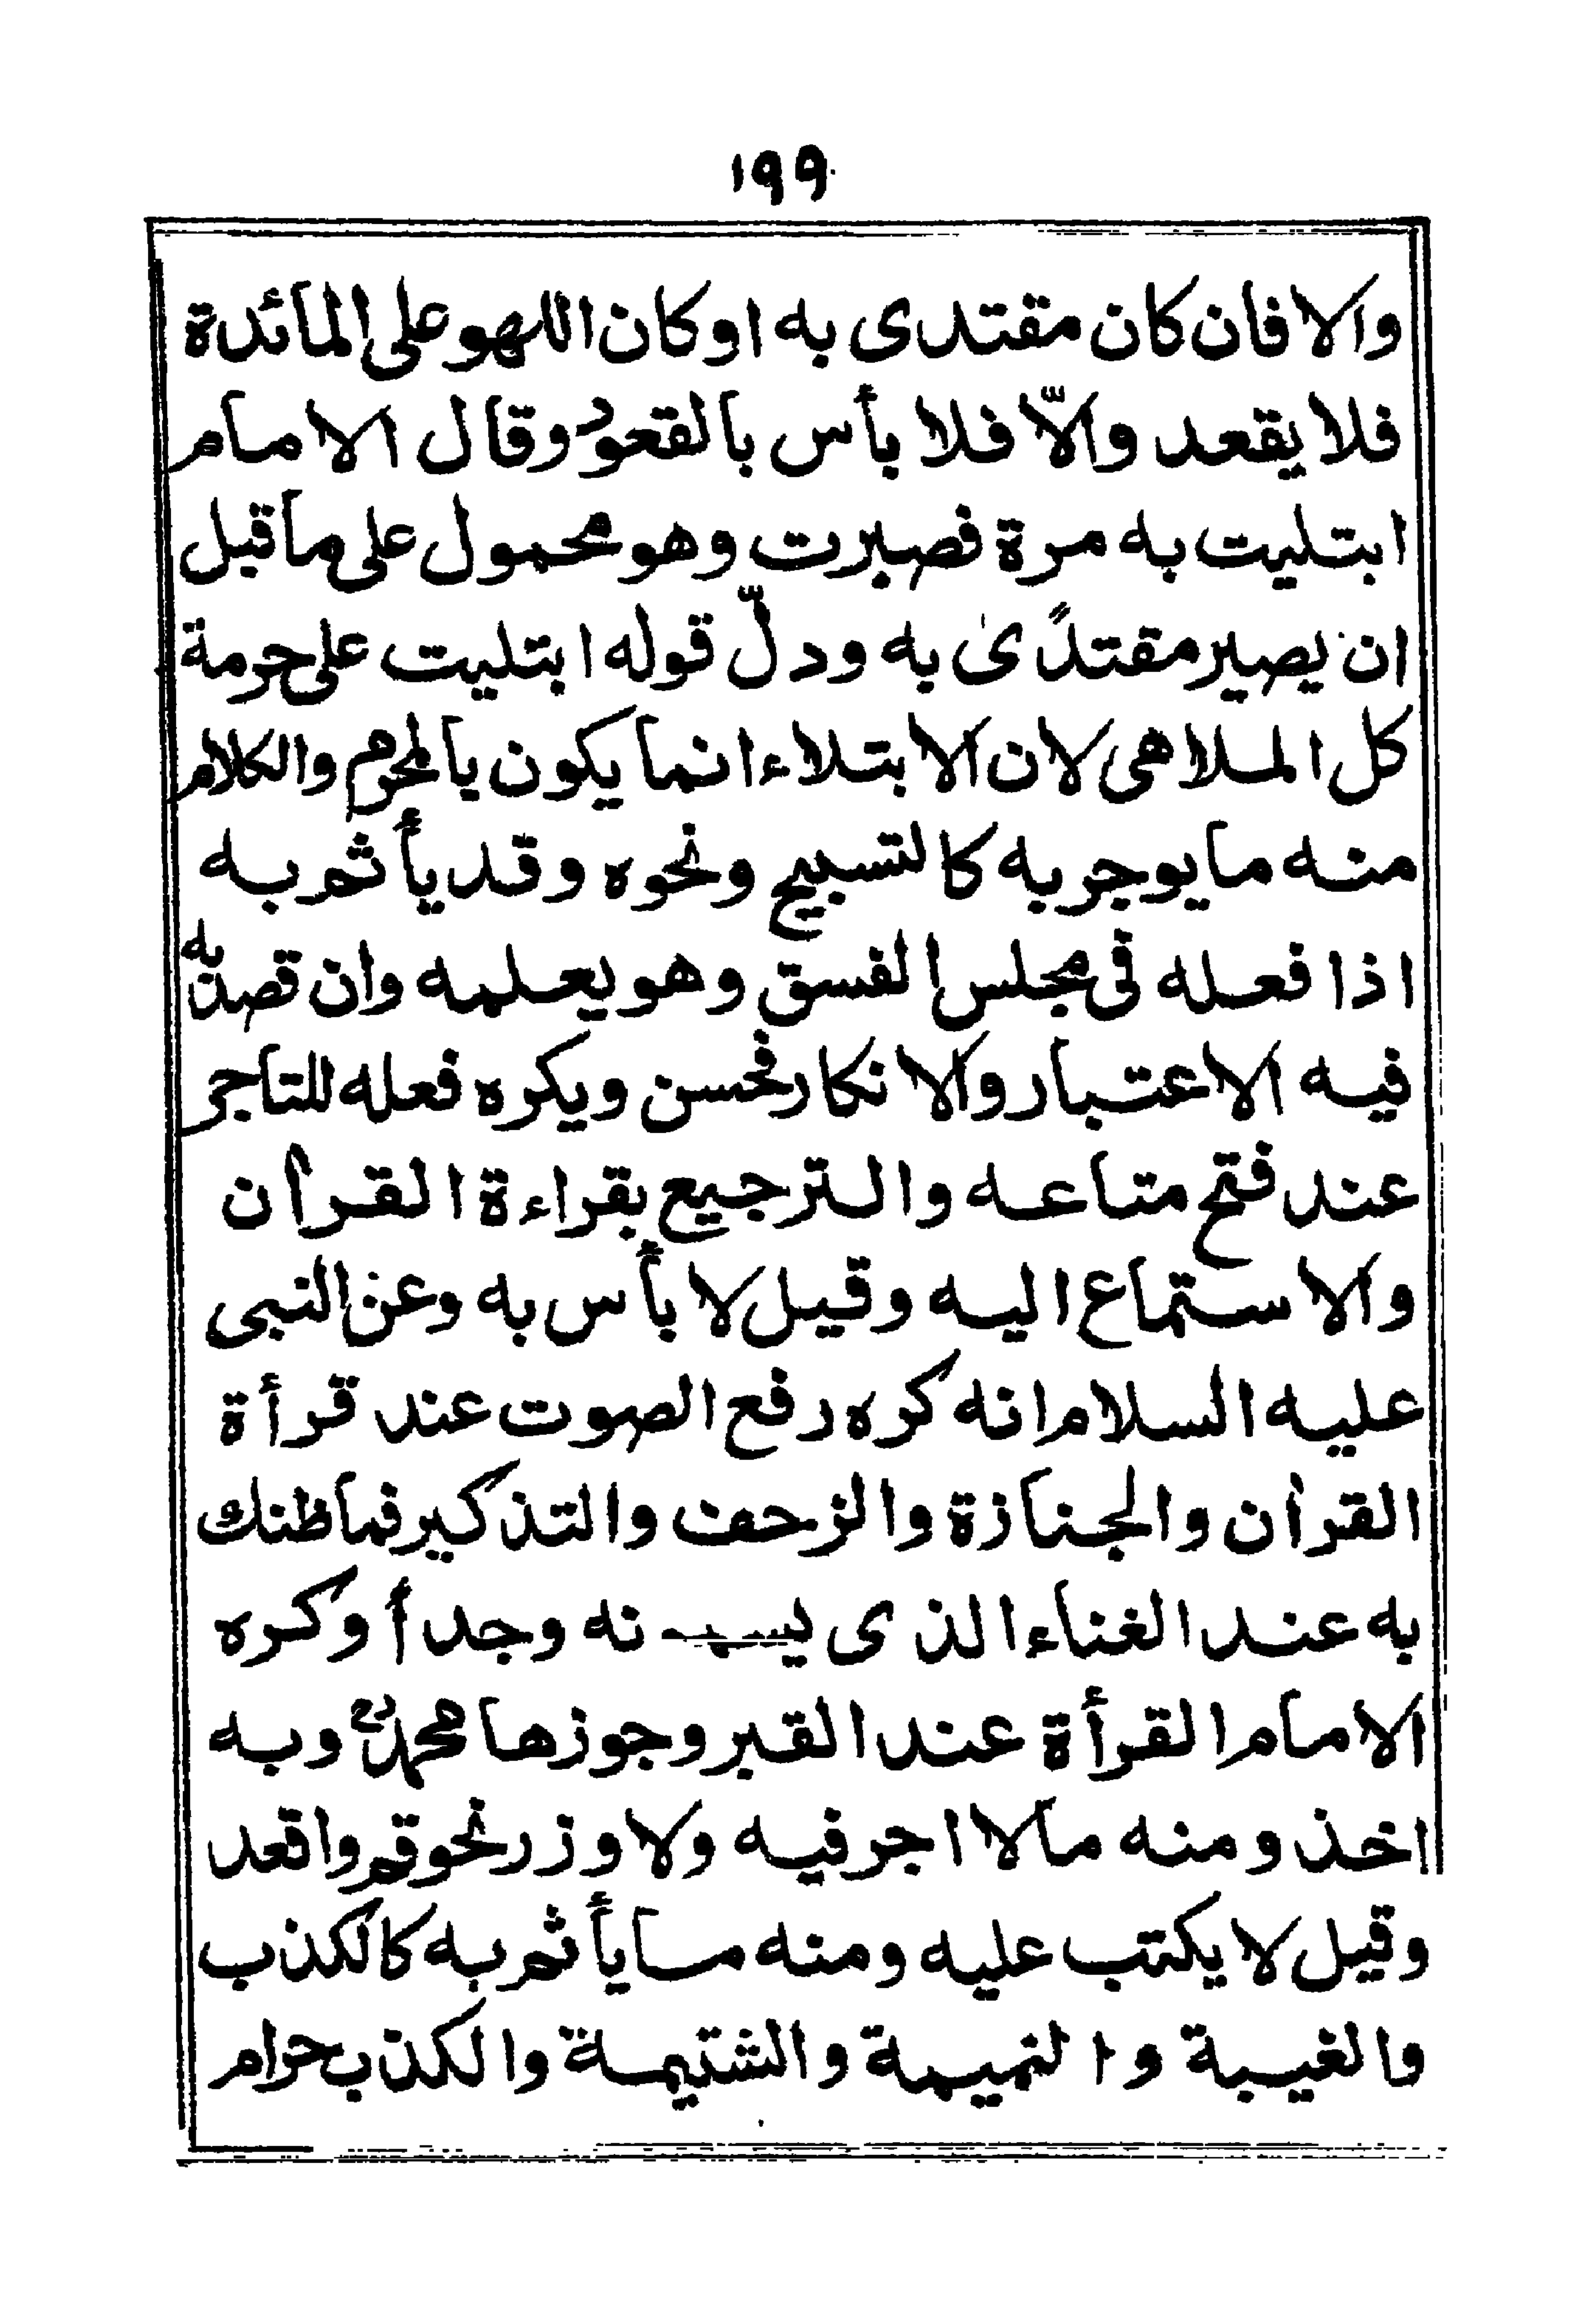 ١٩٩
والا فان كان مقتدى به او كان اللهو على المائدة
فلا يقعد والاّ فلا بأس بالقعود وقال الامام
ابتليت به مرة فصبرت وهو محمول على ما قبل
ان يصير مقتدًى به ودلّ قوله ابتليت على حرمة
كل الملاهى لان الابتلاء انما يكون بالمحرم والكلام
منه ما يوجر به كالتسبيح ونحوه وقد يأثم به
اذا فعله فى مجلس الفسق وهو يعلمه وان قصد به
فيه الاعتبار والانكار فحسن ويكره فعله للتاجر
عند فتح متاعه والترجيع بقراءة القرأن
والاستماع اليه وقيل لا بأس به وعن النبى
عليه السلام انه كره رفع الصوت عند قرأة
القرأن والجنازة والزحف والتذكير فما ظنك
به عند الغناء الذى يسمونه وجدأ وكره
الامام القرأة عند القبر وجوزها محمدؒ وبه
اخذ ومنه ما لا اجر فيه ولا وزر نحو قم واقعد
وقيل لا يكتب عليه ومنه ما يأثم به كالكذب
والغيبة والنميمة والشتيمة والكذب حرام